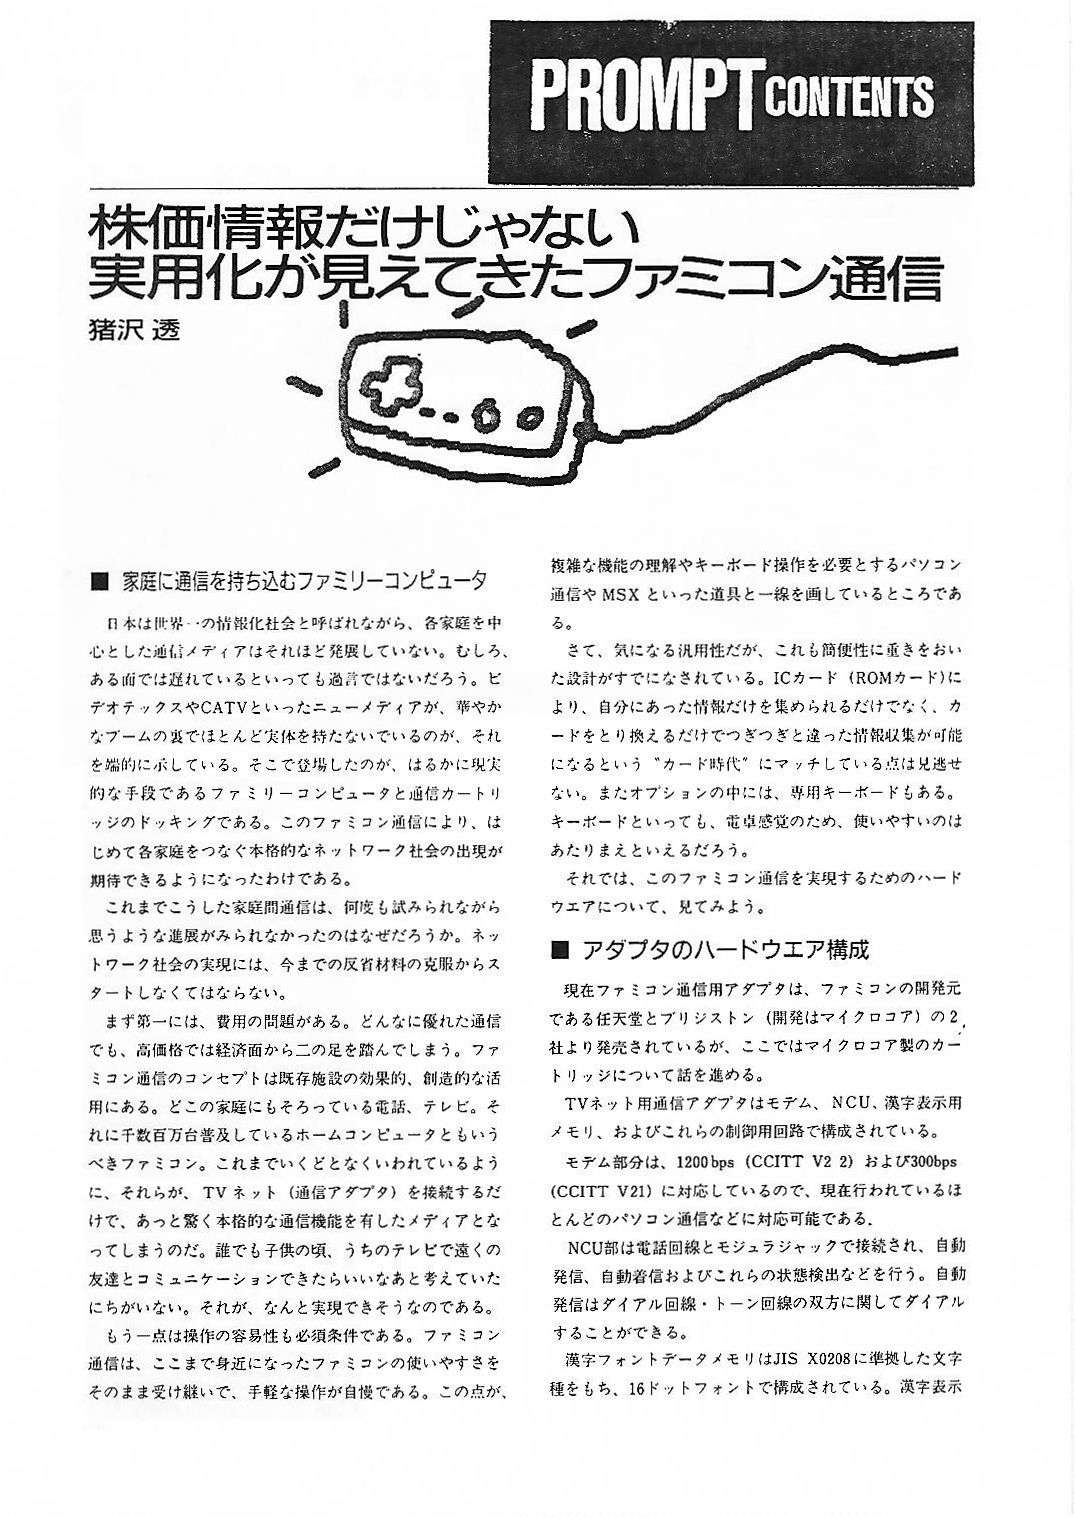 PROMPT CONTENTS
株価情報だけじゃない
実用化が見えてきたファミコン通信
猪沢 透
■ 家庭に通信を持ち込むファミリーコンピュータ
日本は世界一の情報化社会と呼ばれながら、各家庭を中
心とした通信メディアはそれほど発展していない。むしろ、
ある面では遅れているといっても過言ではないだろう。ビ
デオテックスやCATVといったニューメディアが、華やか
なブームの裏でほとんど実体を持たないでいるのが、それ
を端的に示している。そこで登場したのが、はるかに現実
的な手段であるファミリーコンピュータと通信カートリ
ッジのドッキングである。このファミコン通信により、は
じめて各家庭をつなぐ本格的なネットワーク社会の出現が
期待できるようになったわけである。
これまでこうした家庭間通信は、何度も試みられながら
思うような進展がみられなかったのはなぜだろうか。ネッ
トワーク社会の実現には、今までの反省材料の克服からス
タートしなくてはならない。
まず第一には、費用の問題がある。どんなに優れた通信
でも、高価格では経済面から二の足を踏んでしまう。ファ
ミコン通信のコンセプトは既存施設の効果的、創造的な活
用にある。どこの家庭にもそろっている電話、テレビ。そ
れに千数百万台普及しているホームコンピュータともいう
べきファミコン。これまでいくどとなくいわれているよう
に、それらが、TVネット（通信アダプタ）を接続するだ
けで、あっと驚く本格的な通信機能を有したメディアとな
ってしまうのだ。誰でも子供の頃、うちのテレビで遠くの
友達とコミュニケーションできたらいいなあと考えていた
にちがいない。それが、なんと実現できそうなのである。
もう一点は操作の容易性も必須条件である。ファミコン
通信は、ここまで身近になったファミコンの使いやすさを
そのまま受け継いで、手軽な操作が自慢である。この点が、
複雑な機能の理解やキーボード操作を必要とするパソコン
通信や MSX といった道具と一線を画しているところであ
る。
さて、気になる汎用性だが、これも簡便性に重きをおい
た設計がすでになされている。ICカード（ROMカード)に
より、自分にあった情報だけを集められるだけでなく、カ
ードをとり換えるだけでつぎつぎと違った情報収集が可能
になるという〝カード時代〟にマッチしている点は見逃せ
ない。またオプションの中には、専用キーボードもある。
キーボードといっても、電卓感覚のため、使いやすいのは
あたりまえといえるだろう。
それでは、このファミコン通信を実現するためのハード
ウエアについて、見てみよう。
■ アダプタのハードウエア構成
現在ファミコン通信用アダプタは、ファミコンの開発元
である任天堂とブリジストン（開発はマイクロコア）の2
社より発売されているが、ここではマイクロコア製のカー
トリッジについて話を進める。
TVネット用通信アダプタはモデム、NCU、漢字表示用
メモリ、およびこれらの制御用回路で構成されている。
モデム部分は、1200bps (CCITT V2 2) および300bps
(CCITT V21) に対応しているので、現在行われているほ
とんどのパソコン通信などに対応可能である.
NCU部は電話回線とモジュラジャックで接続され、自動
発信、自動着信およびこれらの状態検出などを行う。自動
発信はダイアル回線・トーン回線の双方に関してダイアル
することができる。
漢字フォントデータメモリはJIS X0208に準拠した文字
種をもち、16ドットフォントで構成されている。漢字表示